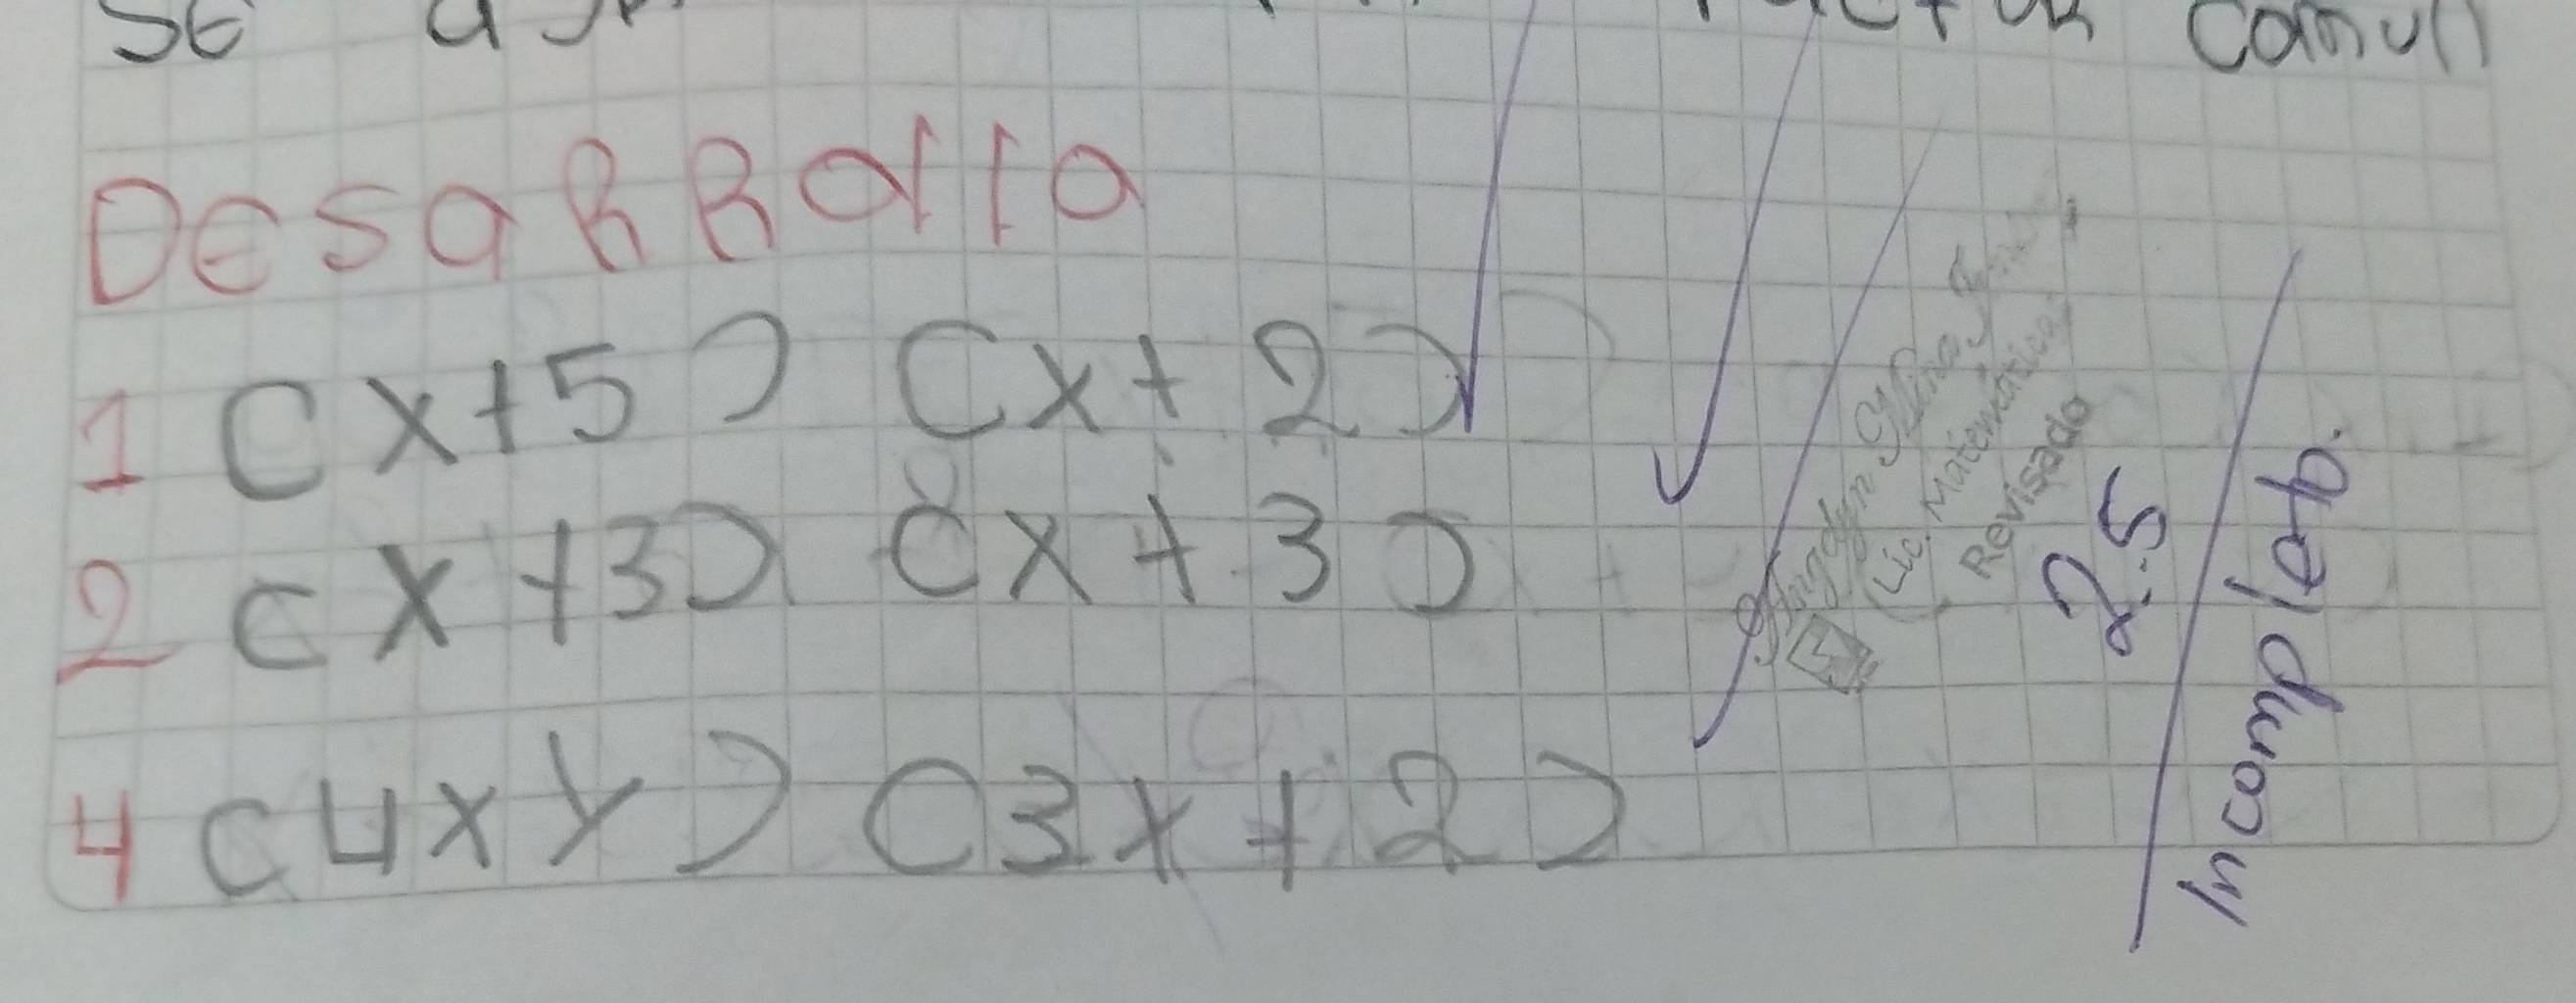 comun
DESARRollo
1 (x+5) (x+2)
2 (x+3) (x+3)
4 (4xy) (3x+2)
(Lic. Matemáticas)
Revisado
2.5
Incompleto.